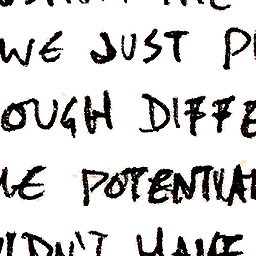 WE JUST
OUGH DIFFE
POTENTIAL
DN'T HAVE